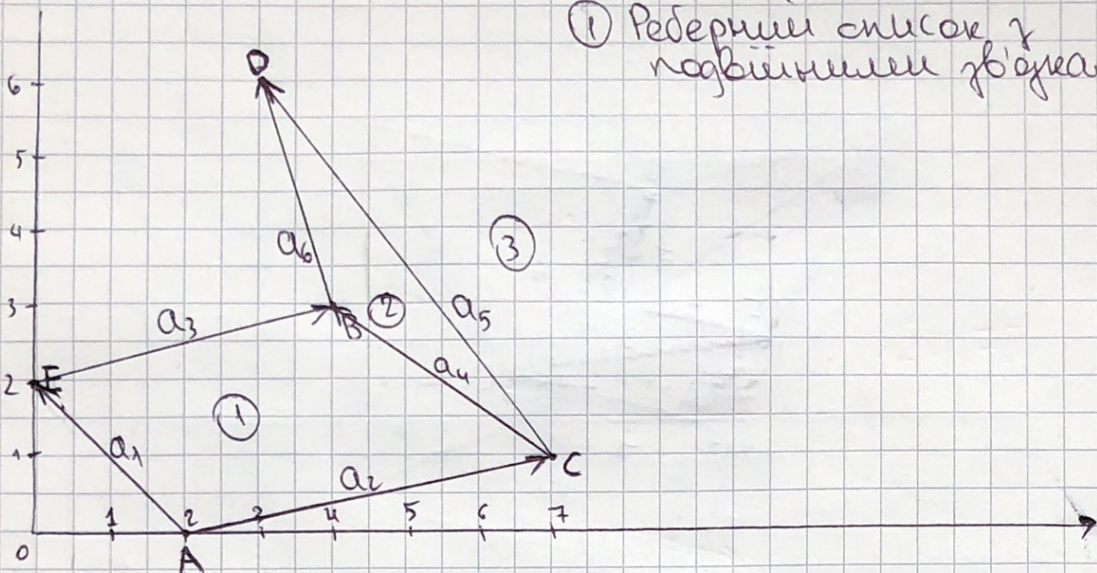 ① Реберний список з
подвійними зв'язка
D
6
5
4
3
2
1
0
a6
③
a3
B
②
a5
E
a4
①
a1
a2
C
1 2 3 4 5 6 7
A